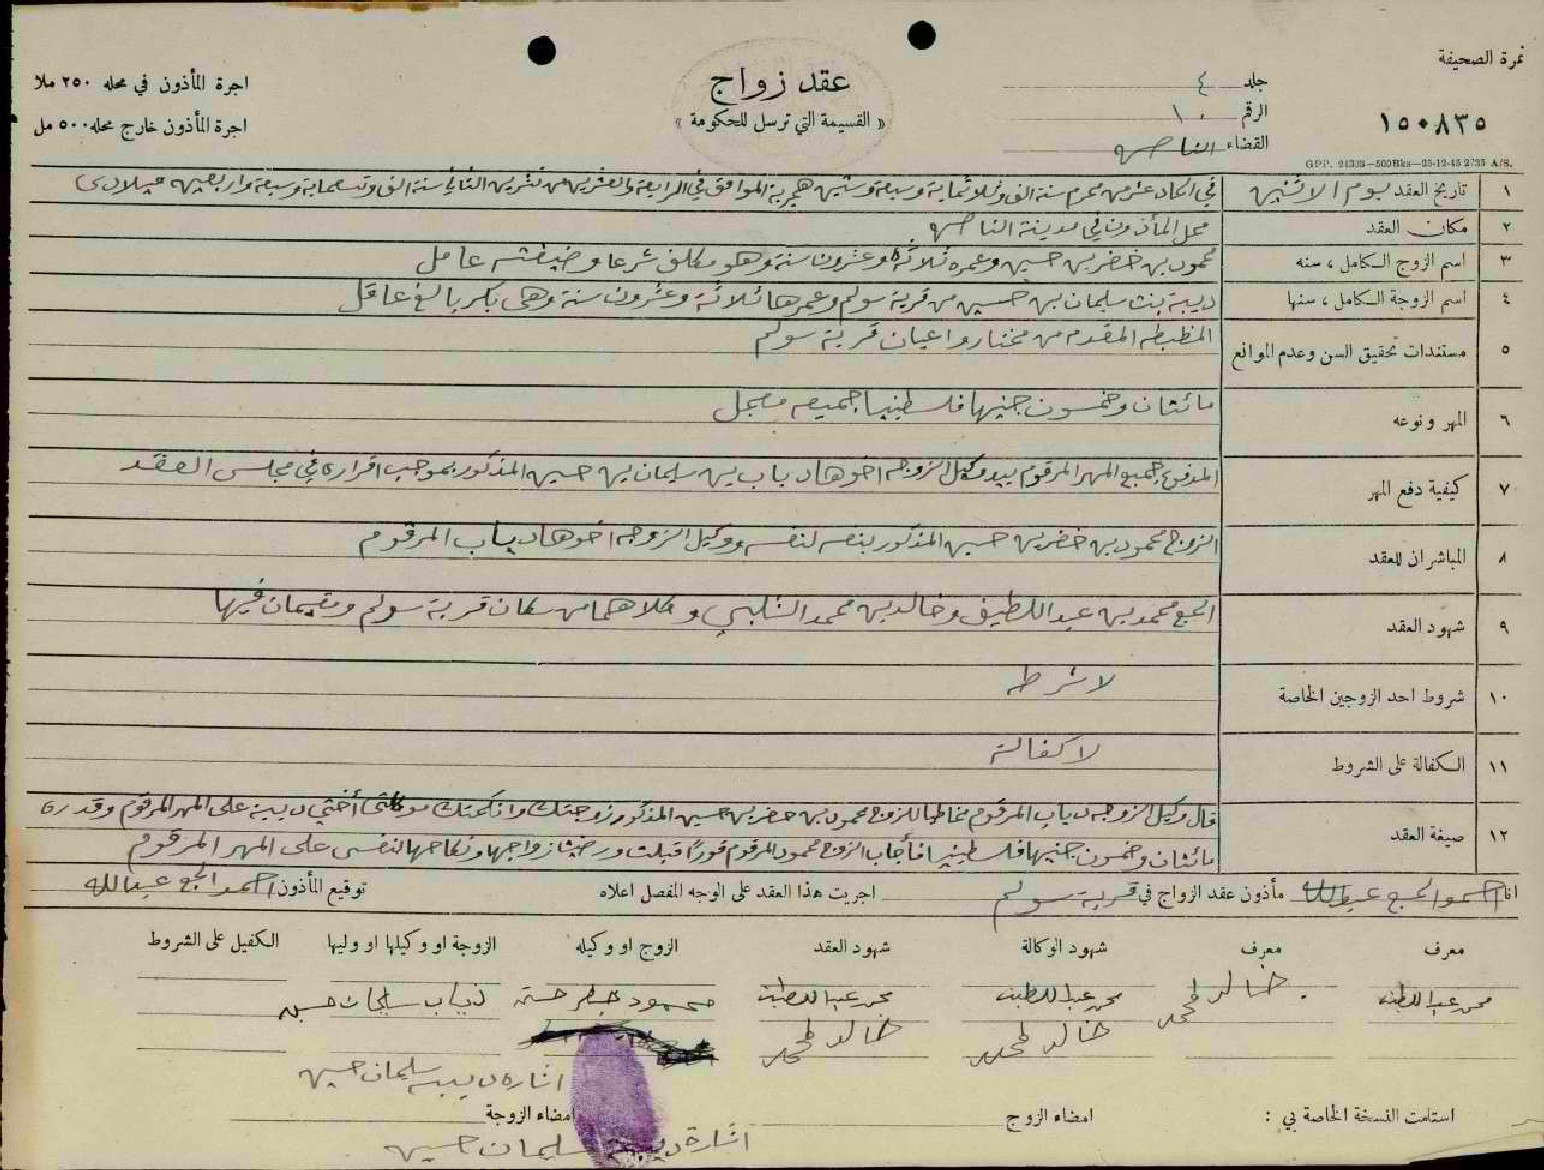 نمرة الصحيفة
١٥٠٨٣٥
جلد ٤
الرقم ١٠
القضاء الناصره
عقد زواج
« القسيمة التي ترسل للحكومة »
اجرة المأذون في محله ٢٥٠ ملا
اجرة المأذون خارج محله ٥٠٠ مل
GPP. 24333—500Bks—23-12-45 2735 A/S.
١ تاريخ العقد يوم الاثنين في الحادي عشر من محرم سنة الف وثلاثماية وسبعة وستين هجرية الموافق في الرابعة والعشرين من تشرين الثاني سنة الف وتسعماية وسبعة واربعين ميلادي
٢ مكان العقد محل المأذون في مدينة الناصره
٣ اسم الزوج الكامل ، سنه محمود بن خضر بن حسين وعمره ثلاثة وعشرون سنة وهو مكلف شرعا وضيفته عامل
٤ اسم الزوجة الكامل ، سنها ديبة بنت سليمان بن حسين من قرية سولم وعمرها ثلاثة وعشرون سنة وهي بكر بالغ عاقل
٥ مستندات تحقيق السن وعدم الموانع المظبطه المقدمه من مختار واعيان قرية سولم
٦ المهر ونوعه مائتان وخمسون جنيها فلسطينيا جميعه معجل
٧ كيفية دفع المهر المدفوع جميع المهر المرقوم بيد وكيل الزوجه اخوها دياب بن سليمان بن حسين المذكور بموجب اقراره في مجلس العقد
٨ المباشران للعقد الزوج محمود بن خضر بن حسين المذكور بنفسه لنفسه ووكيل الزوجه اخوها دياب المرقوم
٩ شهود العقد الحج محمد بن عبد اللطيف وخالد بن محمد الشلبي وكلاهما من سكان قرية سولم ومقيمان فيها
١٠ شروط احد الزوجين الخاصة لا شرط
١١ الكفالة على الشروط لا كفالة
١٢ صيغة العقد قال وكيل الزوجه دياب المرقوم مخاطبا للزوج محمود بن خضر بن حسين المذكور زوجتك وانكحتك موكلتي أختي ديبة على المهر المرقوم وقدره
مائتان وخمسون جنيها فلسطينيا فأجاب الزوج محمود المرقوم فورًا قبلت ورضيت زواجها ونكاحها لنفسي على المهر المرقوم
انا احمد الحج عبدالله مأذون عقد الزواج في قرية سولم اجريت هذا العقد على الوجه المفصل اعلاه توقيع المأذون احمد الحج عبدالله
معرف معرف شهود الوكالة شهود العقد الزوج او وكيله الزوجة او وكيلها او وليها الكفيل على الشروط
محمد عبد اللطيف خالد محمد محمد عبد اللطيف محمد عبد اللطيف محمود خضر حسين ذياب سليمان حسين
خالد محمد خالد محمد
اشارة ديبه سليمان حسين
استلمت النسخة الخاصة بي : امضاء الزوج امضاء الزوجة
اشارة ديبة سليمان حسين